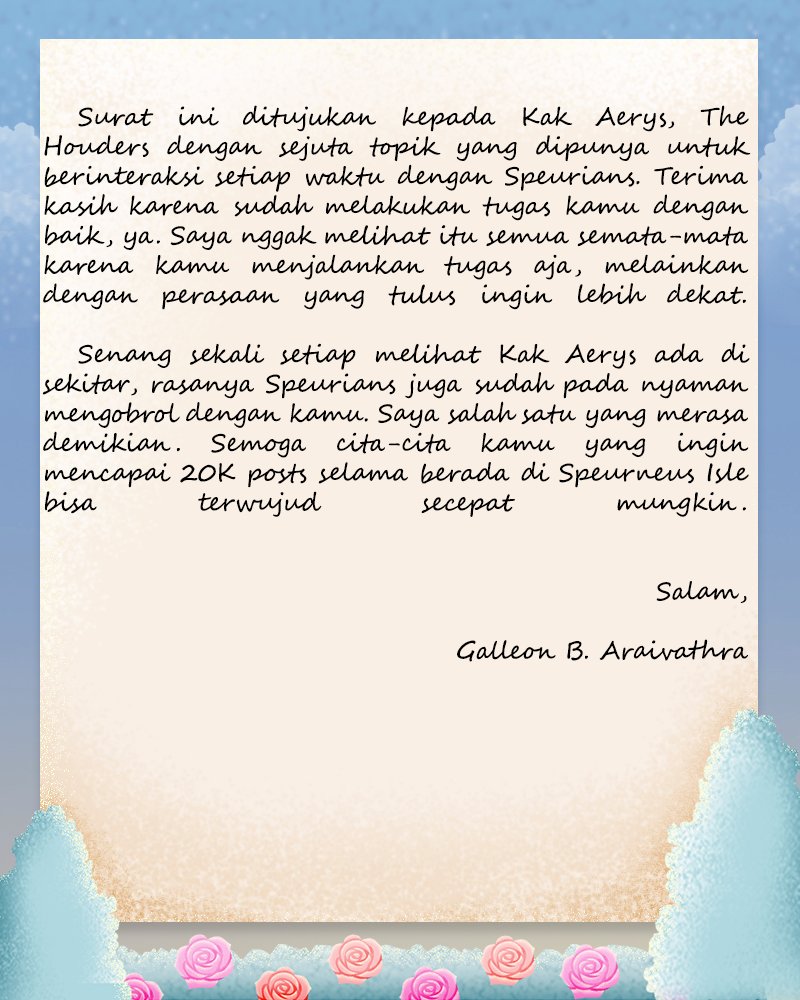 Surat ini ditujukan kepada Kak Aerys, The
Houders dengan sejuta topik yang dipunya untuk
berinteraksi setiap waktu dengan Speurians. Terima
kasih karena sudah melakukan tugas kamu dengan
baik, ya. Saya nggak melihat itu semua semata-mata
karena kamu menjalankan tugas aja, melainkan
dengan perasaan yang tulus ingin lebih dekat.
Senang sekali setiap melihat Kak Aerys ada di
sekitar, rasanya Speurians juga sudah pada nyaman
mengobrol dengan kamu. Saya salah satu yang merasa
demikian. Semoga cita-cita kamu yang ingin
mencapai 20K posts selama berada di Speurneus Isle
bisa terwujud secepat mungkin.
Salam,
Galleon B. Araivathra